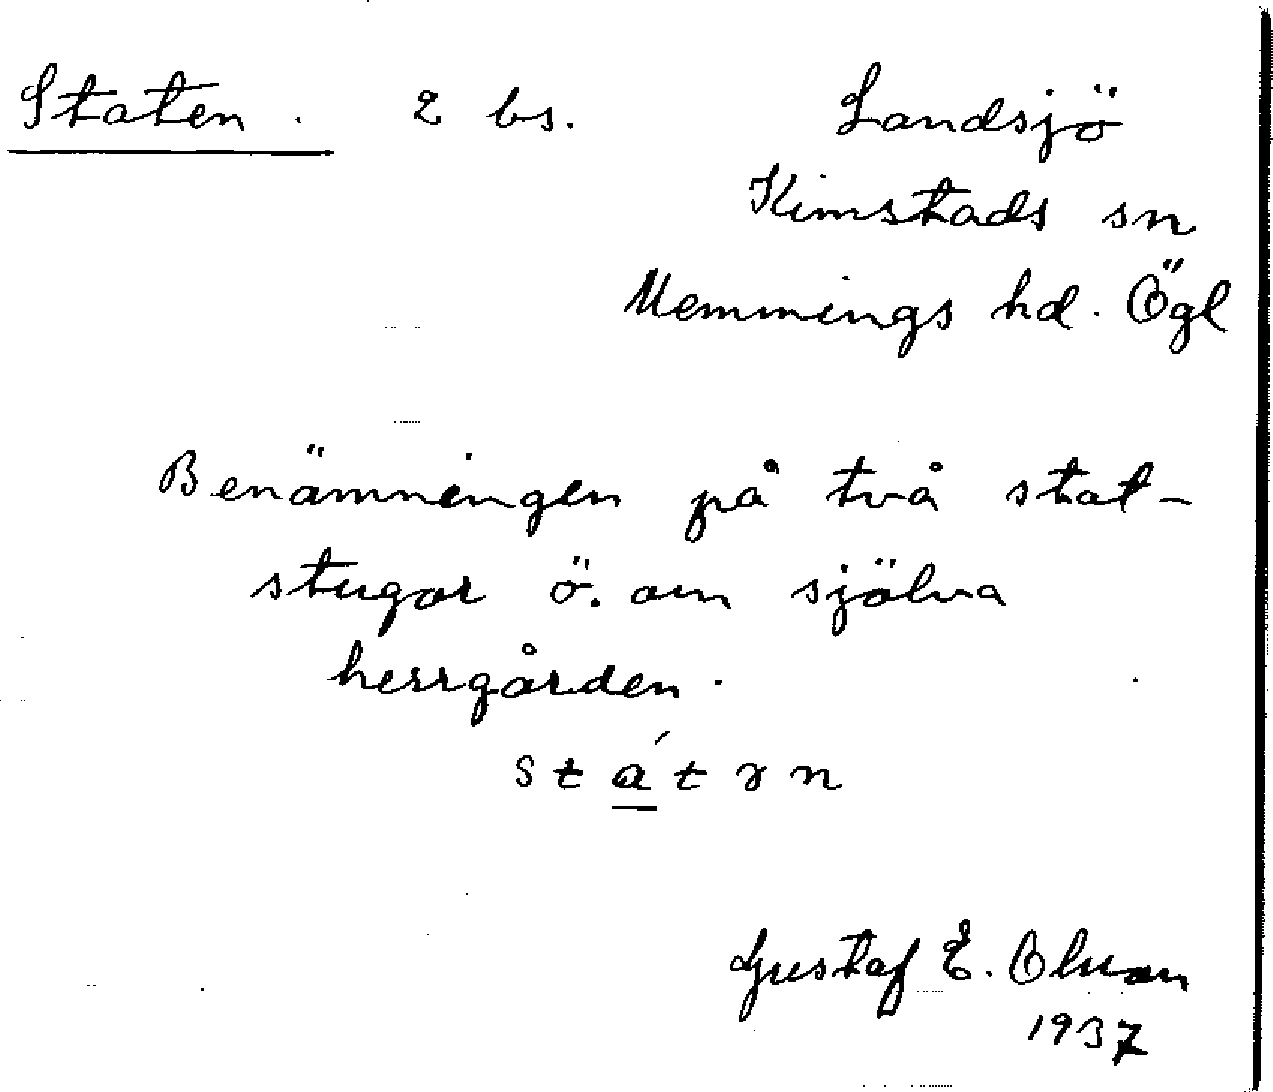 Staten. 2 bs. Landsjö
Kimstads sn
Memmings hd. Ögl
Benämningen på två stat-
stugor ö. om själva
herrgården.
státɤn
Gustaf E. Olsson
1937